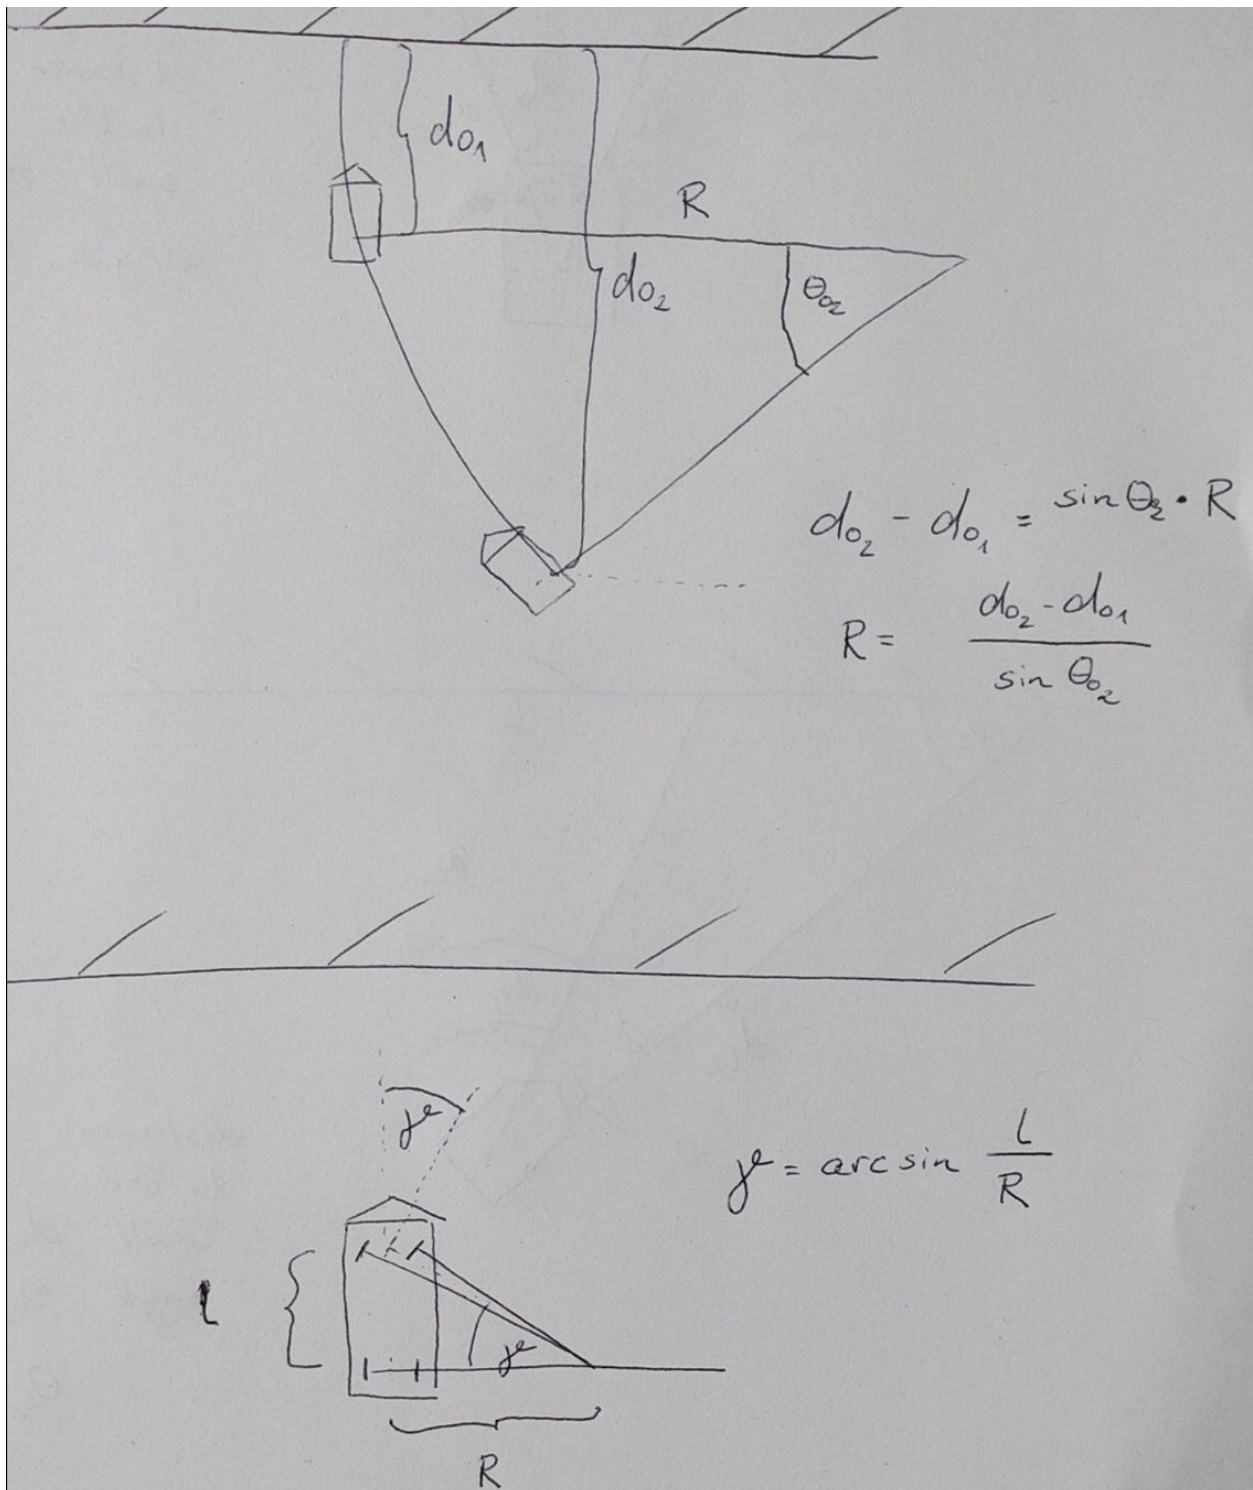 do₁
R
do₂
θo₂
do₂ - do₁ = sin θ₂ · R
R = (do₂ - do₁) / sin θo₂
γ
γ = arcsin l / R
l
γ
R